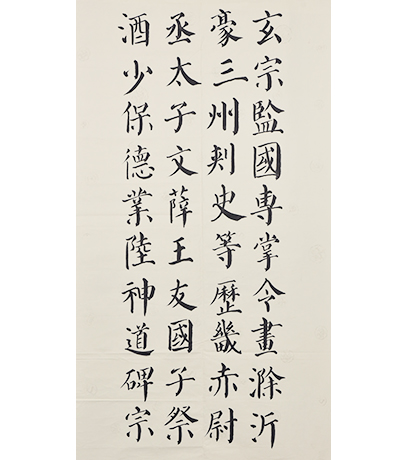 玄宗監國専掌令畫滁沂
豪三州刾史等歷畿赤尉
丞太子文薛王友國子祭
酒少保德業陸神道碑宗